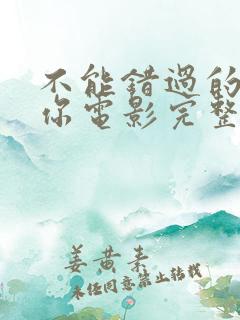 不能错過的
你電影完整
姜黄素
未任同意禁止转载